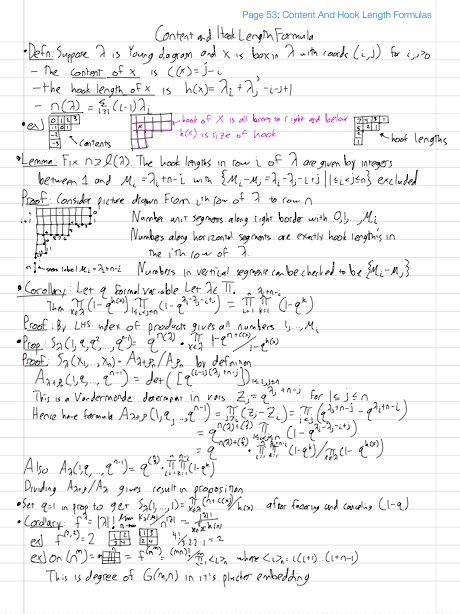 Page 53: Content And Hook Length Formulas
Content and Hook Length Formula
• Defn: Suppose λ is Young diagram and x is box in λ with coords (i,j) for i,j>0
- The content of x is C(x)=j-i
- the hook length of x is h(x)=λ_i+λ_j'-i-j+1
- n(λ)=Σ(i-1)λ_i
• ex)
0 1 2 3
-1 0 1
-2
-3
contents
x
hook of x is all boxes to right and below
h(x) is size of hook
hook lengths
• Lemma: Fix n≥l(λ). The hook lengths in row i of λ are given by integers
between 1 and M_i=λ_i+n-i with {M_i-M_j=λ_i-λ_j-i+j | 1≤i<j≤n} excluded
Proof: Consider picture drawn from i'th row of λ to row n
Number unit segments along right border with 0,1,...,M_i
Numbers along horizontal segments are exactly hook lengths in
the i'th row of λ.
label M_i=λ_i+n-i
Numbers in vertical segments can be checked to be {M_i-M_j}
• Corollary: Let q formal variable. Let λ∈
Then Π_{x∈λ}(1-q^{h(x)}) Π_{1≤i<j≤n}(1-q^{λ_i-λ_j-i+j}) = Π_{i=1}^{n} Π_{k=1}^{λ_i+n-i}(1-q^k)
Proof: By LHS index of products gives all numbers 1,...,M_i
• Prop: S_λ(1,q,q²,...,q^{n-1}) = q^{n(λ)} · Π_{x∈λ} 1-q^{n+c(x)}/1-q^{h(x)}
Proof: S_λ(x_1,...,x_n)=A_{λ+ρ_n}/A_{ρ_n} by definition
A_{λ+ρ}(1,q,...,q^{n-1}) = det([q^{(i-1)(λ_j+n-j)}])_{1≤i,j≤n}
This is a Vandermonde determinant in vars Z_j=q^{λ_j+n-j} for 1≤j≤n
Hence have formula A_{λ+ρ}(1,q,...,q^{n-1}) = Π_{i<j}(Z_j-Z_i) = Π_{i<j}(q^{λ_j+n-j}-q^{λ_i+n-i})
= q^{n(λ)+(n 3)} Π_{1≤i<j≤n}(1-q^{λ_i-λ_j-i+j})
= q^{n(λ)+(n 3)} · Π_{i=1}^{n} Π_{k=1}^{λ_i+n-i}(1-q^k)/Π_{x∈λ}(1-q^{h(x)})
Also A_ρ(1,q,...,q^{n-1}) = q^{(n 3)} · Π_{i=1}^{n} Π_{k=1}^{n-i}(1-q^k)
Dividing A_{λ+ρ}/A_ρ gives result in proposition
• Set q=1 in prop to get S_λ(1,...,1)=Π_{x∈λ}(n+c(x))/h(x) after factoring and canceling (1-q)
• Corollary: f^λ=|λ|!
ex) f^{(2,2)}=2
1 2
3 4
1 3
2 4
4!/3·2·2·1=2
ex) on (n^m)= f^{(n^m)}=(mn)!/ where <i>_n=i(i+1)...(i+n-1)
This is degree of G(m,n) in it's plucker embedding